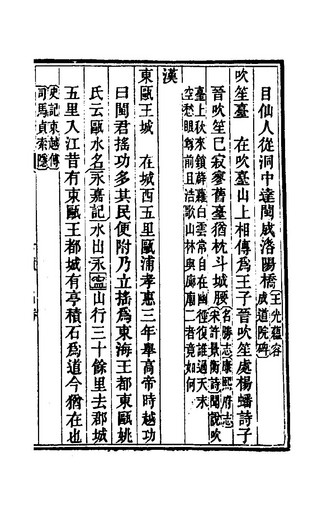 目仙人從洞中達閩咸洛陽橋王光蘊容成道院碑
吹笙臺　在吹臺山上相傳爲王子晉吹笙處楊蟠詩子
晉吹笙已寂寥舊臺猶枕斗城腰名勝志康熙府志宋許景衡詩聞說吹
臺上秋來鎖薜蘿白雲常自在幽徑復誰過天末
空愁眼尊前且浩歌山林與廊廟二者竟如何
漢
東甌王城　在城西五里甌浦孝惠三年舉高帝時越功
曰閩君搖功多其民便附乃立搖爲東海王都東甌姚
氏云甌水名永嘉記水出永寧山行三十餘里去郡城
五里入江昔有東甌王都城有亭積石爲道今猶在也
史記東越傳
司馬貞索隱